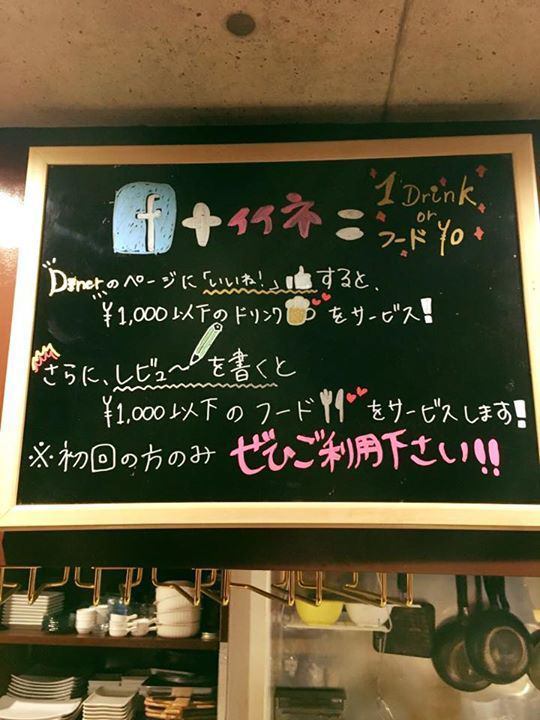 f + イイネ = 1 Drink or フード ¥0
Dinerのページに「いいね!」すると、
¥1,000以下のドリンクをサービス!
さらに、レビューを書くと
¥1,000以下のフードをサービスします!
※初回の方のみ ぜひご利用下さい!!